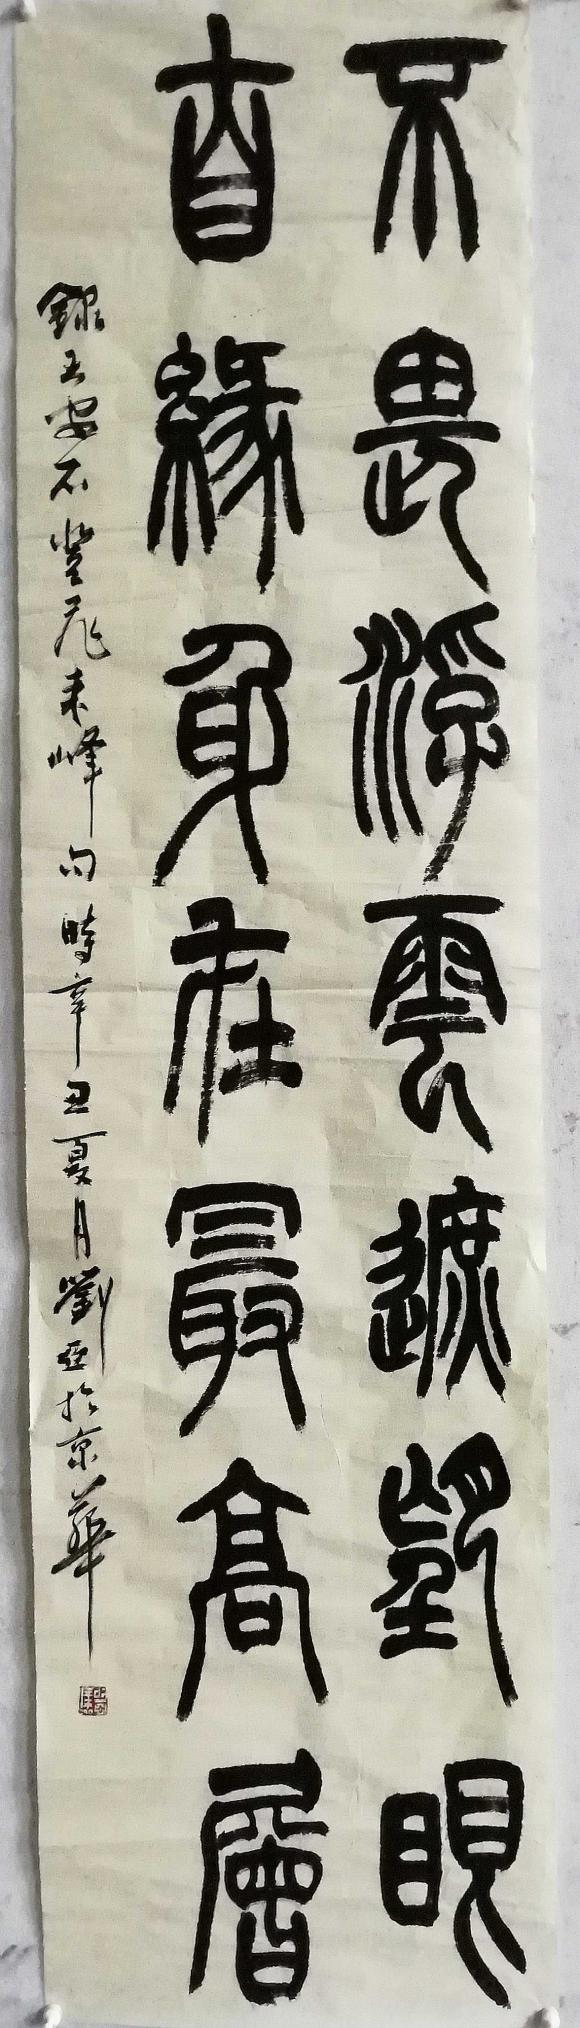 不畏浮雲遮望眼
自緣身在最高層
錄王安石登飛來峰句時辛丑夏月劉亞於京華